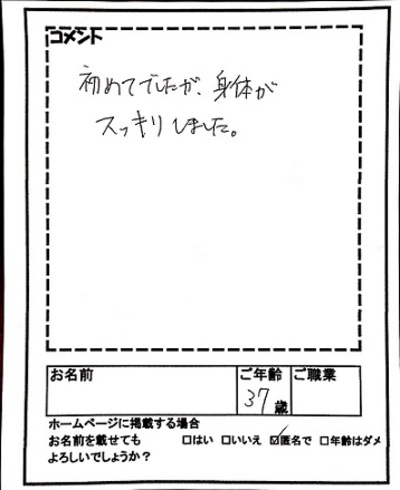 コメント
初めてでしたが、身体が
スッキリしました。
お名前
ご年齢
ご職業
37歳
ホームページに掲載する場合
お名前を載せても □はい □いいえ ☑匿名で □年齢はダメ
よろしいでしょうか？